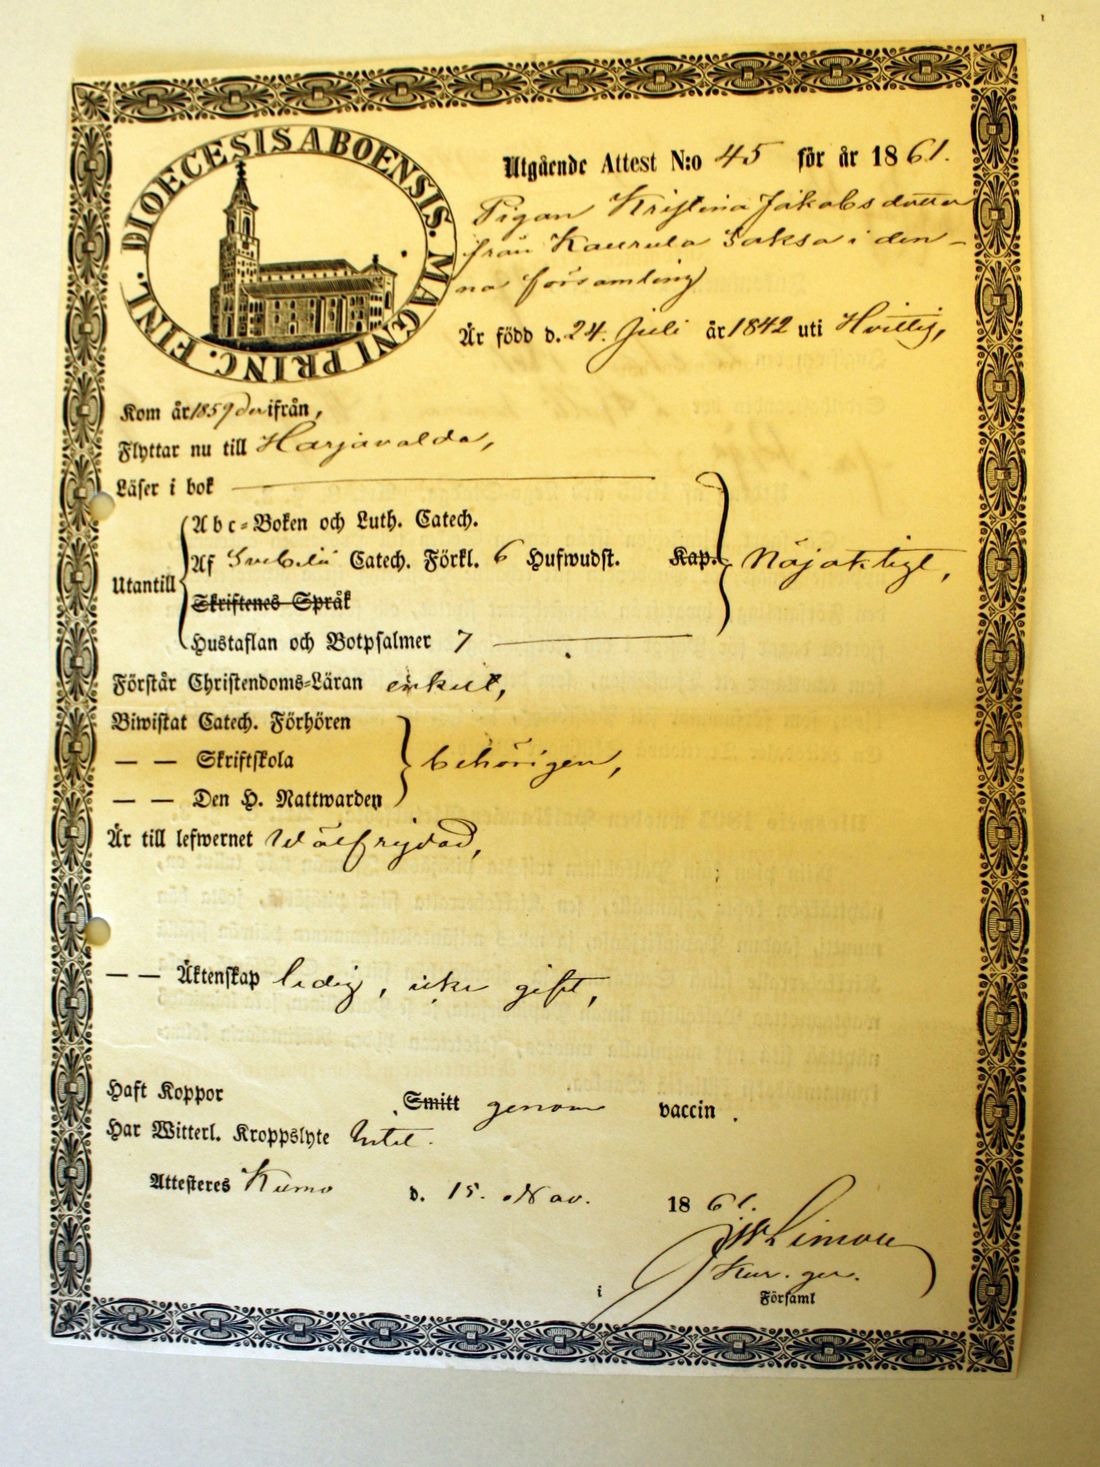 DIOECESIS ABOENSIS. MAGNI PRINC. FINL.
Utgående Attest N:o 45 för år 1861.
Pigan Kristina Jakobsdotter
från Kaurula Saksa i den-
na församling
Är född d. 24. Juli år 1842 uti Hvittis,
Kom år 1859 der ifrån,
Flyttar nu till Harjavalda,
Läser i bok
Utantill
Abc-Boken och Luth. Catech.
Af Svebelii Catech. Förkl. 6 Hufwudst. Kap. Nöjaktigt,
Skriftenes Språk
Hustaflan och Botpsalmer 7
Förstår Christendoms-Läran enkelt,
Biwistat Catech. Förhören
— — Skriftskola behörigen,
— — Den H. Nattwarden
Är till lefwernet Wälfrejdad,
— — Äktenskap ledig, icke gift,
Haft Koppor Smitt genom vaccin.
Har Witterl. Kroppslyte Intet.
Attesteres Kumo d. 15. Nov. 1861.
Limon
i Församl